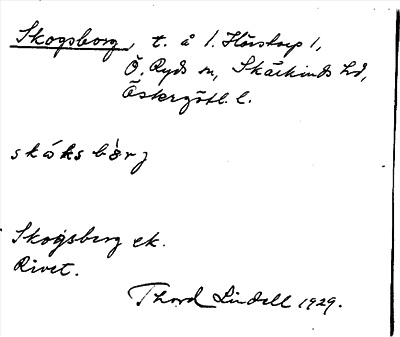 Skogsborg, t. å 1. Hörstorp 1,
Ö. Ryds sn, Skärkinds hd,
Östergötl. l.
skɷksbårj
Skogsberg ek.
Rivet.
Thord Lindell 1929.